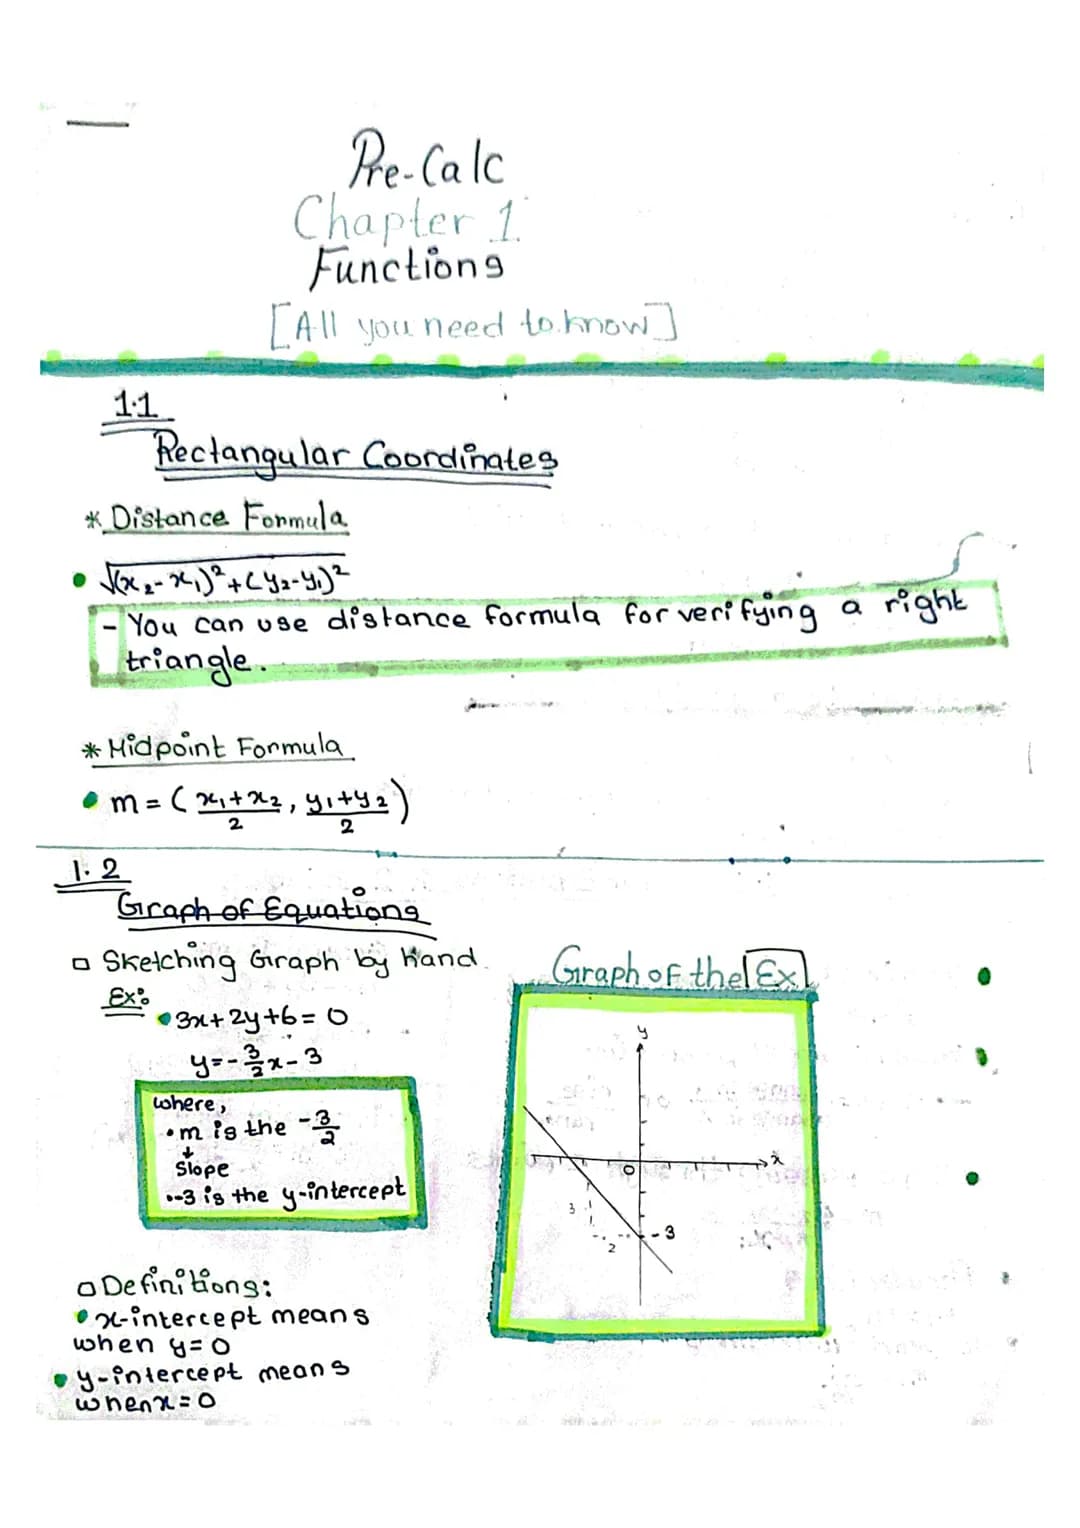 Pre-Calc
Chapter 1
Functions
[All you need to know]
1.1
Rectangular Coordinates
* Distance Formula
• √(x₂-x₁)²+(y₂-y₁)²
- You can use distance formula for verifying a right
triangle.
* Midpoint Formula
• m = (x₁+x₂/2, y₁+y₂/2)
1.2
Graph of Equations
□ Sketching Graph by hand
Ex:
• 3x+2y+6=0
y=-3/2x-3
where,
• m is the -3/2
↓
Slope
•-3 is the y-intercept
Graph of the Ex
y
x
0
3
2
-3
□ Definitions:
• x-intercept means
when y=0
• y-intercept means
when x=0